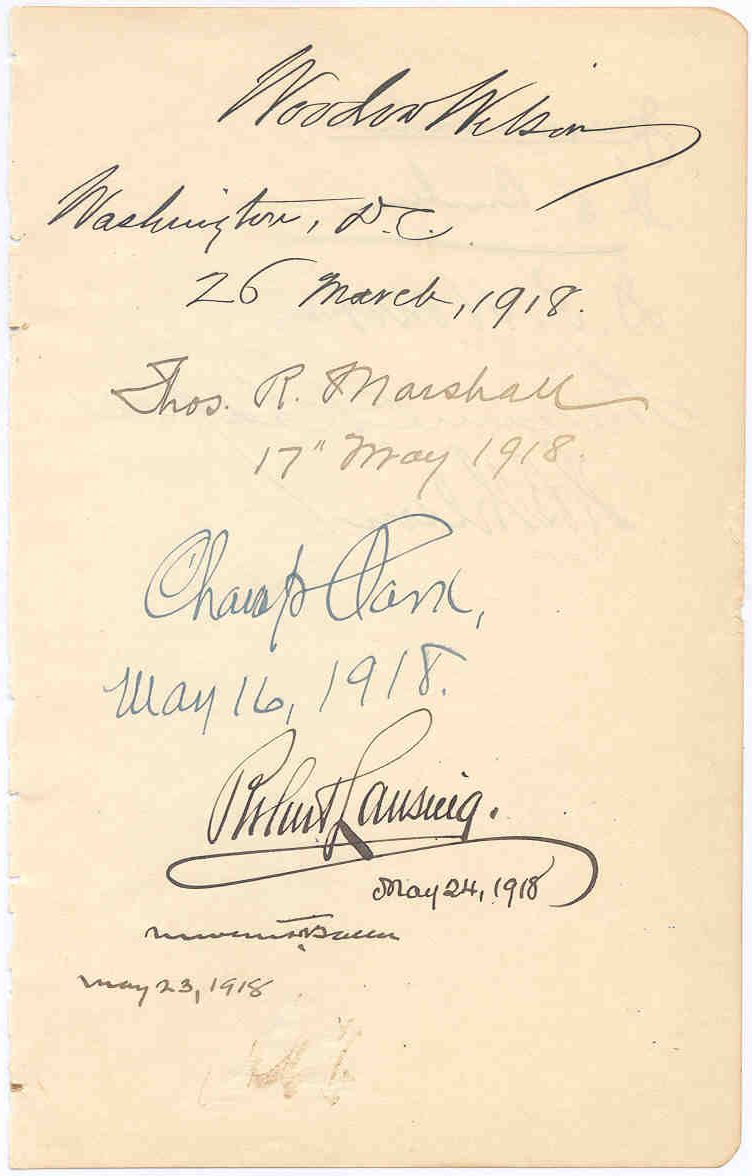 Woodrow Wilson
Washington, D.C.
26 March, 1918.
Thos. R. Marshall
17" May 1918.
Champ Clark,
May 16, 1918.
Robert Lansing.
May 24, 1918
May 23, 1918